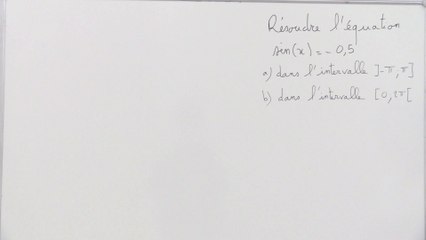 Résoudre l'équation
sin(x) = - 0,5
a) dans l'intervalle ]-π, π]
b) dans l'intervalle [0, 2π[